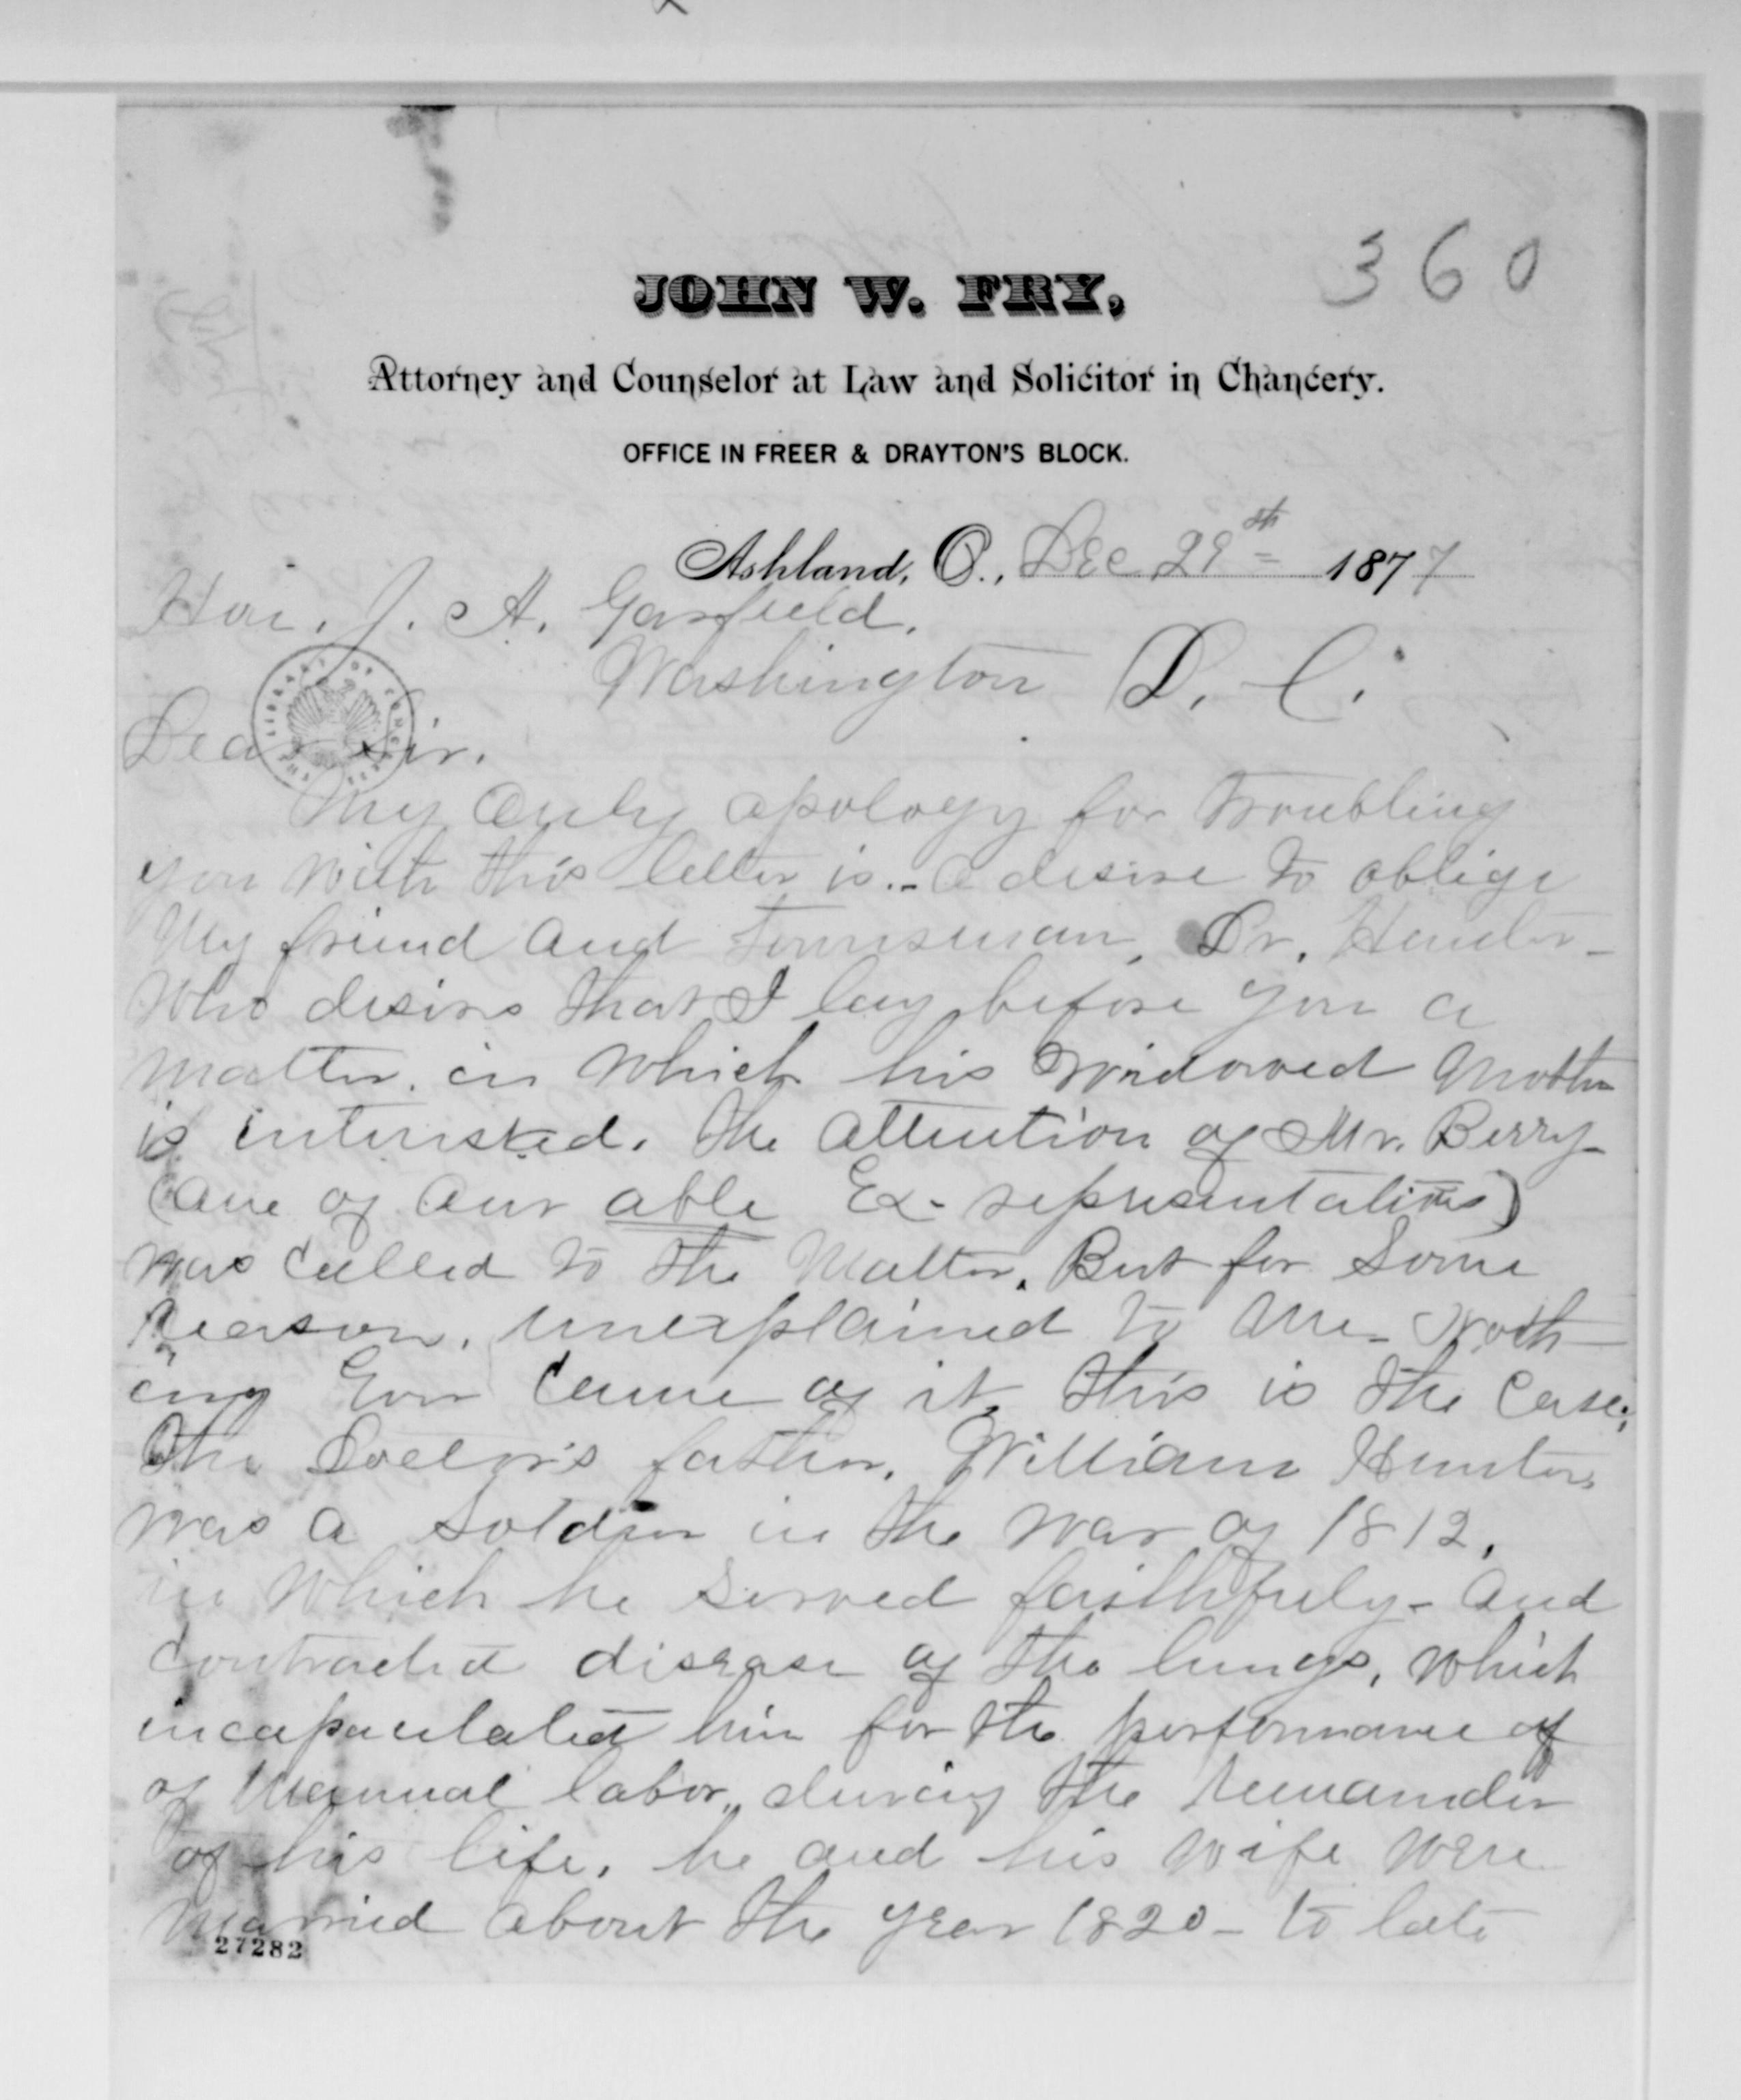 360
JOHN W. FRY,
Attorney and Counselor at Law and Solicitor in Chancery.
OFFICE IN FREER & DRAYTON'S BLOCK.
Ashland, O., Dec 29th 1877
Hon. J. A. Garfield.
Washington D. C.
Dear Sir.
My only apology for troubling
you with this letter is - a desire to oblige
My friend and Townsman, Dr. Hunter -
Who desires that I lay before you a
matter. in which his widowed Mother
is interested. The attention of Mr. Berry -
(one of our able Ex-representatives)
was called to the Matter. But for Some
reason, unexplained to me - Noth
ing Ever Came of it, this is the Case;
The Doctor's father, William Hunter,
was a soldier in the war of 1812,
in which he served faithfuly - and
contracted disease of the lungs, which
incapacitated him for the performance of
of Manual labor, during the remainder
of his life. he and his wife were
married about the year 1820 - to late
27282